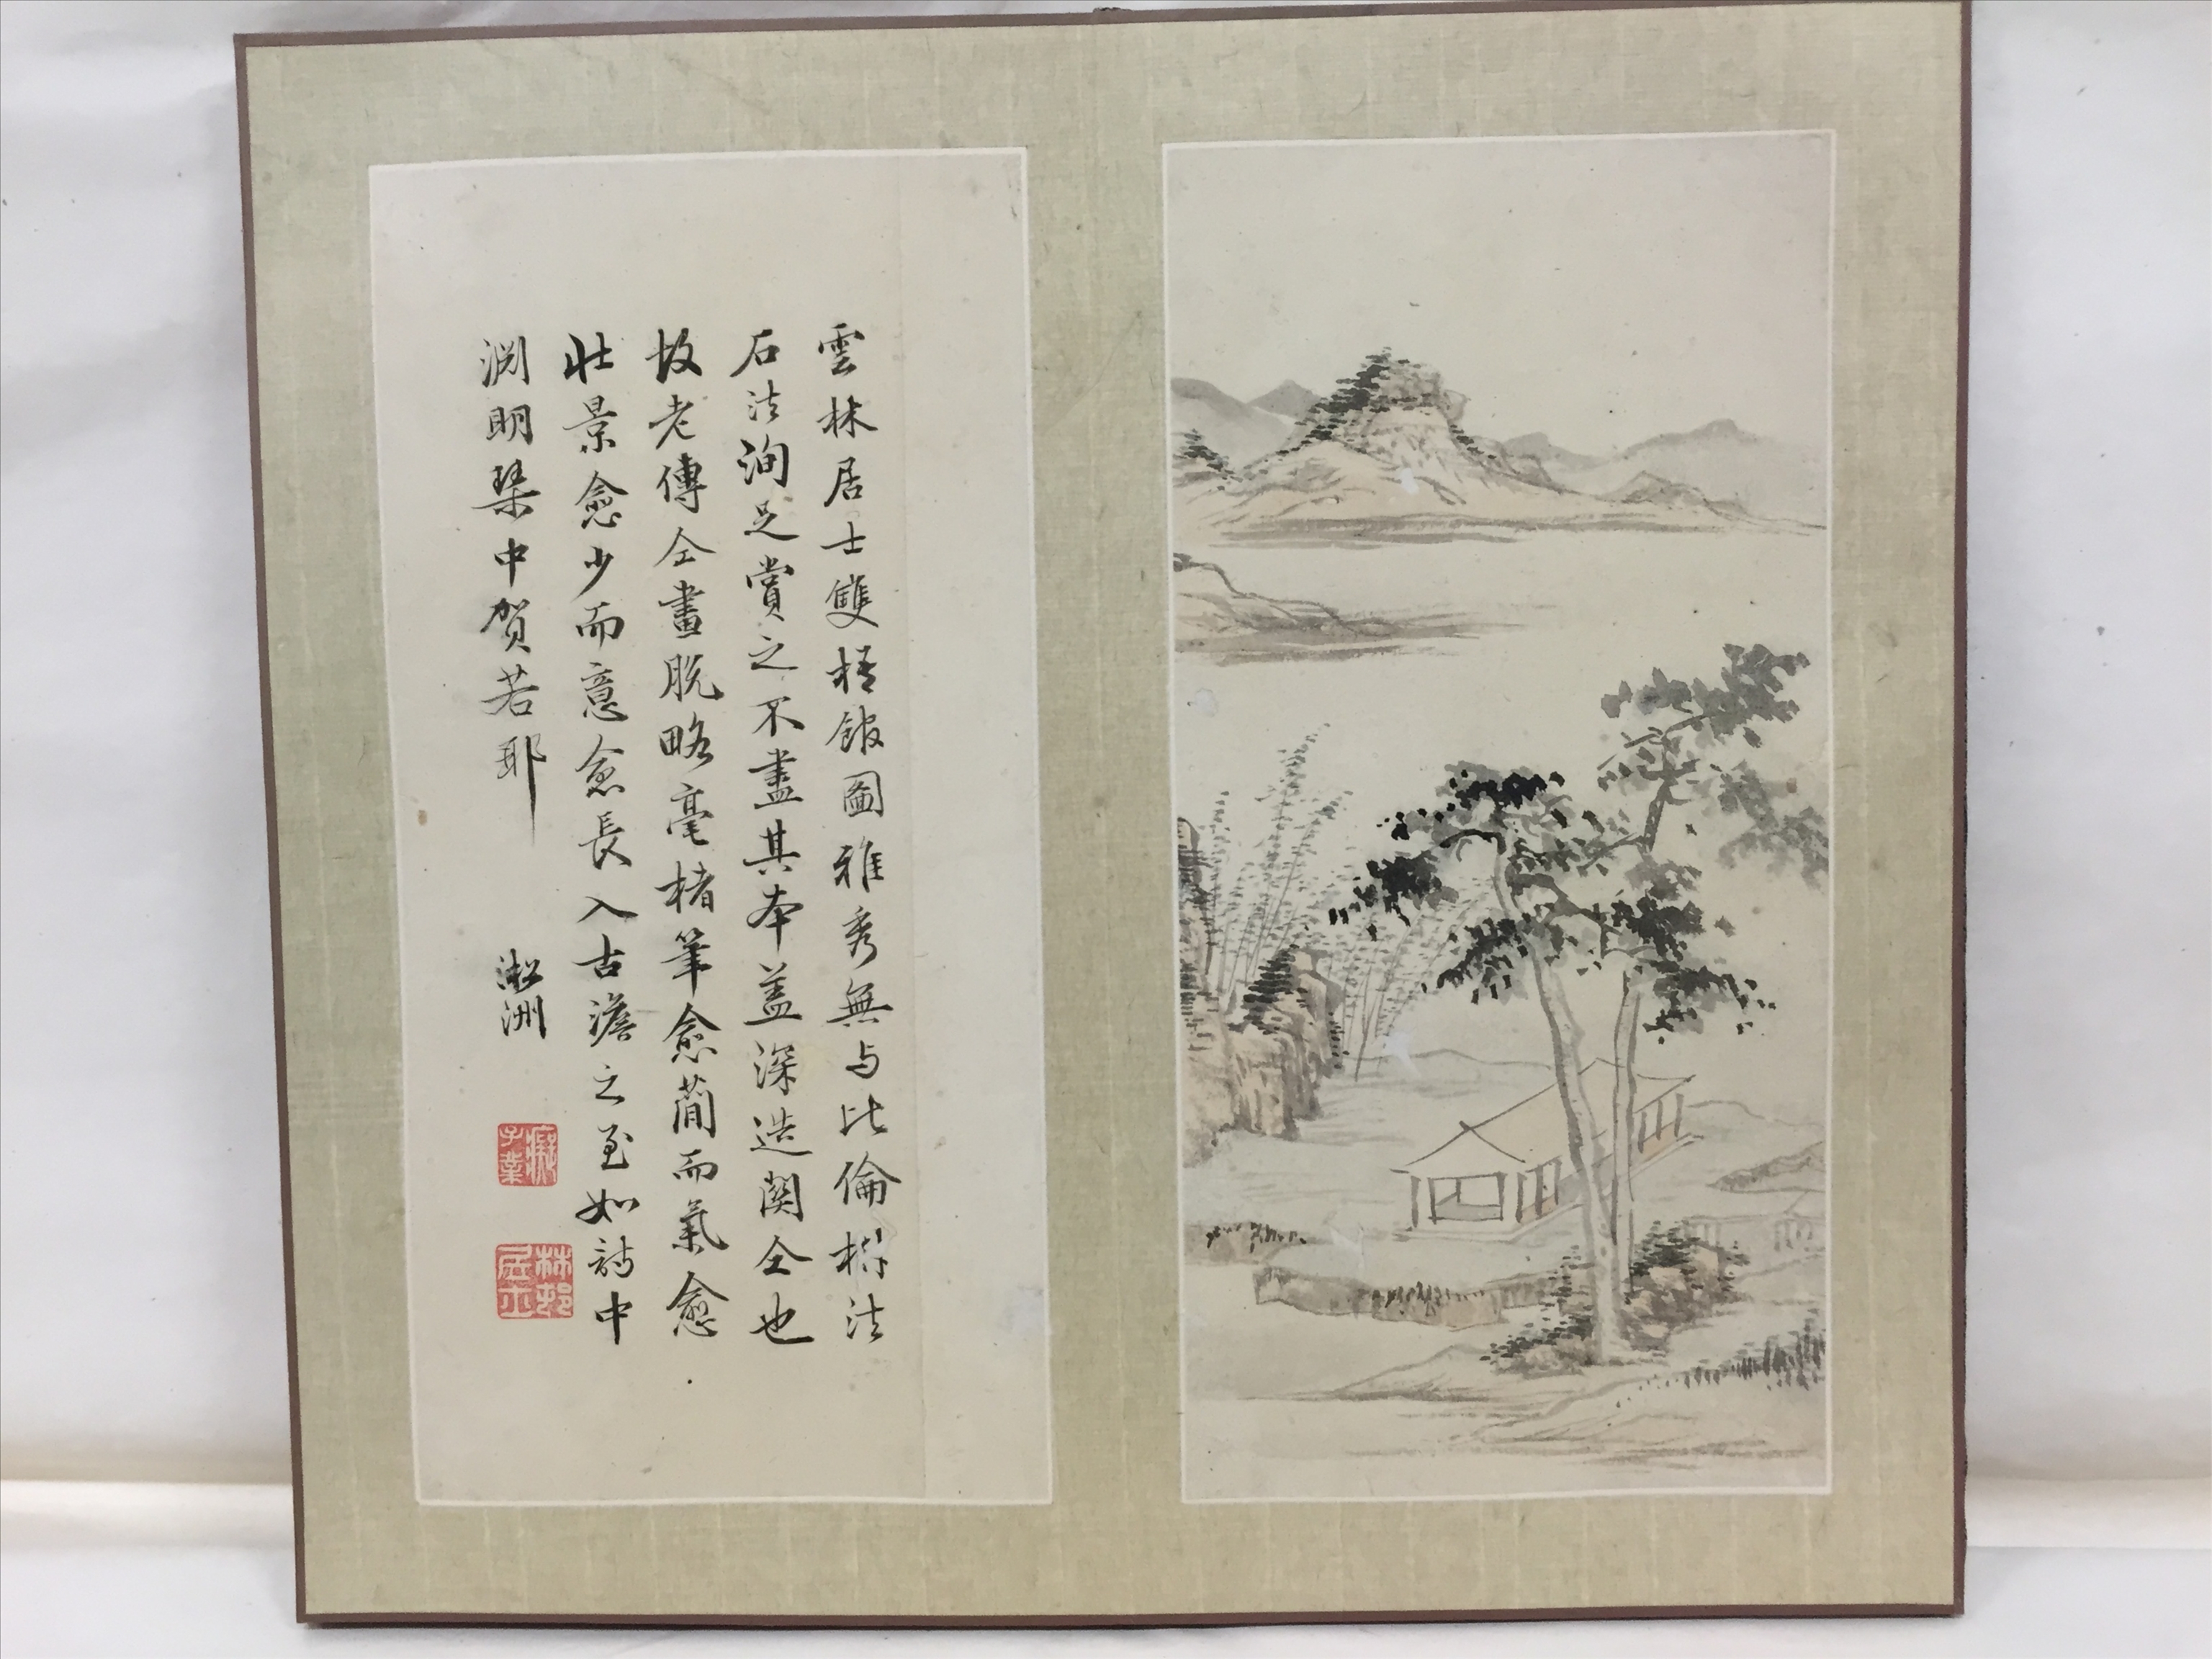 雲林居士雙梧館圖雅秀無与比倫樹法
石法洵足賞之不盡其本蓋深造関仝也
故老傳仝畫脱略毫楮筆愈蕑而氣愈
壯景愈少而意愈長入古澹之至如詩中
渊明琴中贺若耶
淞洲
林邨居士